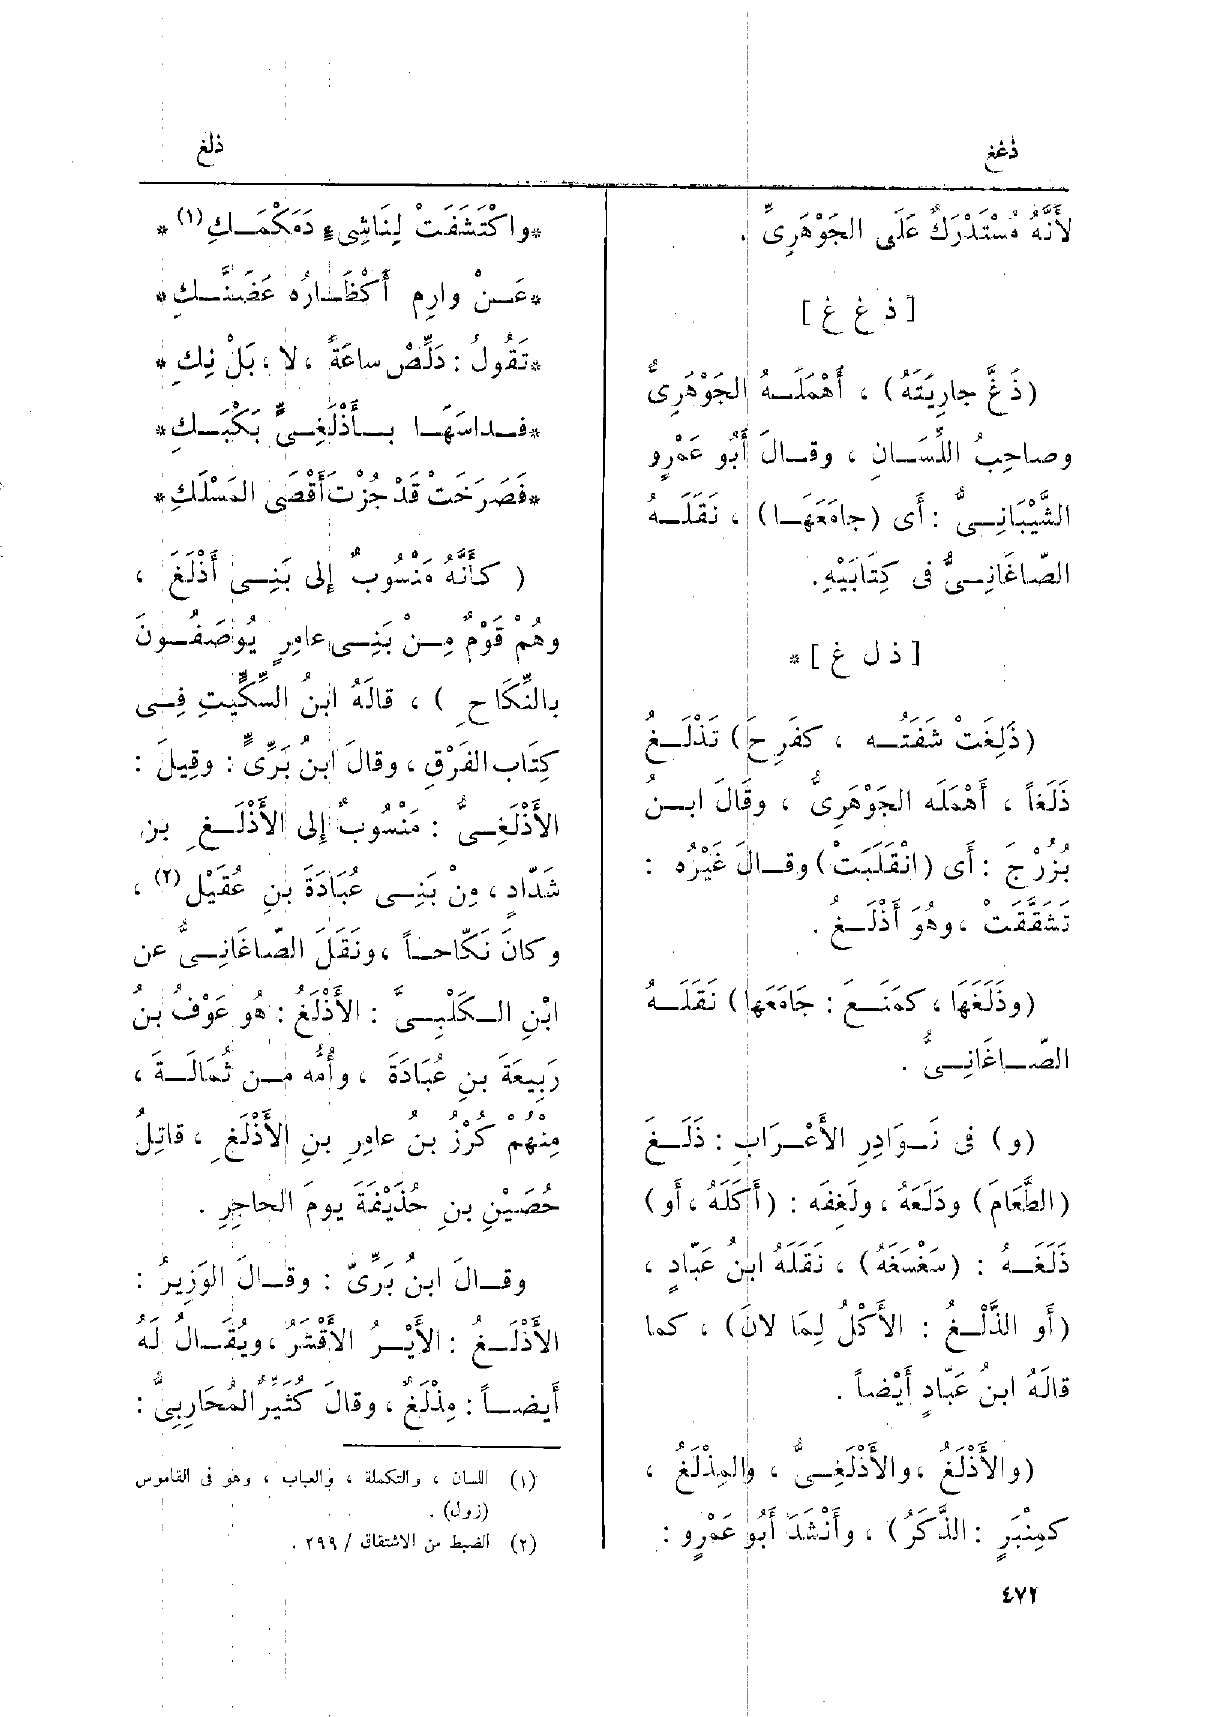 ذغغ
ذلغ
لأَنَّهُ مُسْتَدْرَكٌ عَلَى الجَوْهَرِىِّ .
[ ذ غ غ ]
(ذَغَّ جارِيَتَهُ) ، أَهْمَلَـهُ الجَوْهَرِىُّ
وصاحِبُ اللِّسَـانِ ، وقـالَ أَبُو عَمْرٍو
الشَّيْبَانِـىُّ : أَى (جامَعَهَـا) ، نَقَلَـهُ
الصّاغَانِـىُّ فى كِتَابَيْهِ.
[ ذ ل غ ] *
(ذَلِغَتْ شَفَتُـه ، كفَرِحَ) تَذْلَـغُ
ذَلَغاً ، أَهْمَلَه الجَوْهَرِىُّ ، وقَالَ ابـنُ
بُزُرْجَ : أَى (انْقَلَبَتْ) وقـالَ غَيْرُه :
تَشَقَّقَتْ ، وهُوَ أَذْلَـغُ .
(وذَلَغَها ، كمَنَـعَ : جَامَعَها) نَقَلَـهُ
الصّـاغَانِـىُّ .
(و) فى نَـوَادِرِ الأَعْـرَابِ : ذَلَـغَ
(الطَّعَامَ) ودَلَعَهُ ، ولَغِفَه : (أَكَلَهُ ، أَو)
ذَلَغَـهُ : (سَغْسَغَهُ) ، نَقَلَهُ ابنُ عَبّادٍ ،
(أَو الذَّلْـغُ : الأَكْلُ لِمَا لانَ) ، كما
قالَهُ ابنُ عَبّادٍ أَيْضاً .
(والأَذْلَغُ ، والأَذْلَغِـىُّ ، والمِذْلَغُ ،
كمِنْبَرٍ : الذَّكَرُ) ، وأَنْشَدَ أَبُو عَمْرٍو :
*واكْتَشَفَتْ لِنَاشِىءٍ دَمَكْمَـكِ (١) *
*عَـنْ وارِمٍ أَكْظَـارُه عَضَنَّـكِ*
*تَقُولُ : دَلِّصْ ساعَةً ، لا ، بَلْ نِكِ*
*فـداسَهَـا بـأَذْلَغِـىٍّ بَكْبَـكِ*
*فَصَرَخَتْ قَدْ جُزْتَ أَقْصَى المَسْلَكِ*
( كأَنَّهُ مَنْسُوبٌ إِلى بَنِـى أَذْلَغَ ،
وهُمْ قَوْمٌ مِـنْ بَنِـى عامِرٍ يُوصَفُـونَ
بالنِّكَاحِ ) ، قالَهُ ابنُ السِّكِّيتِ فِـى
كِتَابِ الفَرْقِ ، وقالَ ابنُ بَرِّىٍّ : وقِيلَ :
الأَذْلَغِـىُّ : مَنْسُوبٌ إِلى الأَذْلَـغِ بنِ
شَدّادٍ ، مِنْ بَنِـى عُبَادَةَ بنِ عُقَيْلٍ (٢) ،
وكانَ نَكّاحـاً ، ونَقَلَ الصّاغَانِـىُّ عن
ابْنِ الـكَلْبِـىِّ : الأَذْلَغُ : هُو عَوْفُ بنُ
رَبِيعَةَ بنِ عُبَادَةَ ، وأُمُّه مـن ثُمَالَـةَ ،
مِنْهُمْ كُرْزُ بنُ عامِرِ بنِ الأَذْلَغِ ، قاتِلُ
حُصَيْنِ بنِ حُذَيْفَةَ يومَ الحاجِرِ .
وقـالَ ابنُ بَرِّىّ : وقـالَ الوَزِيرُ :
الأَذْلَـغُ : الأَيْـرُ الأَقْشَرُ ، ويُقَـالُ لَهُ
أَيضـاً : مِذْلَغٌ ، وقالَ كُثَيِّرٌ المُحَارِبِىُّ :
(١) اللسان ، والتكملة ، والعباب ، وهو فى القاموس
(زول) .
(٢) الضبط من الاشتقاق / ٢٩٩ .
٤٧٢